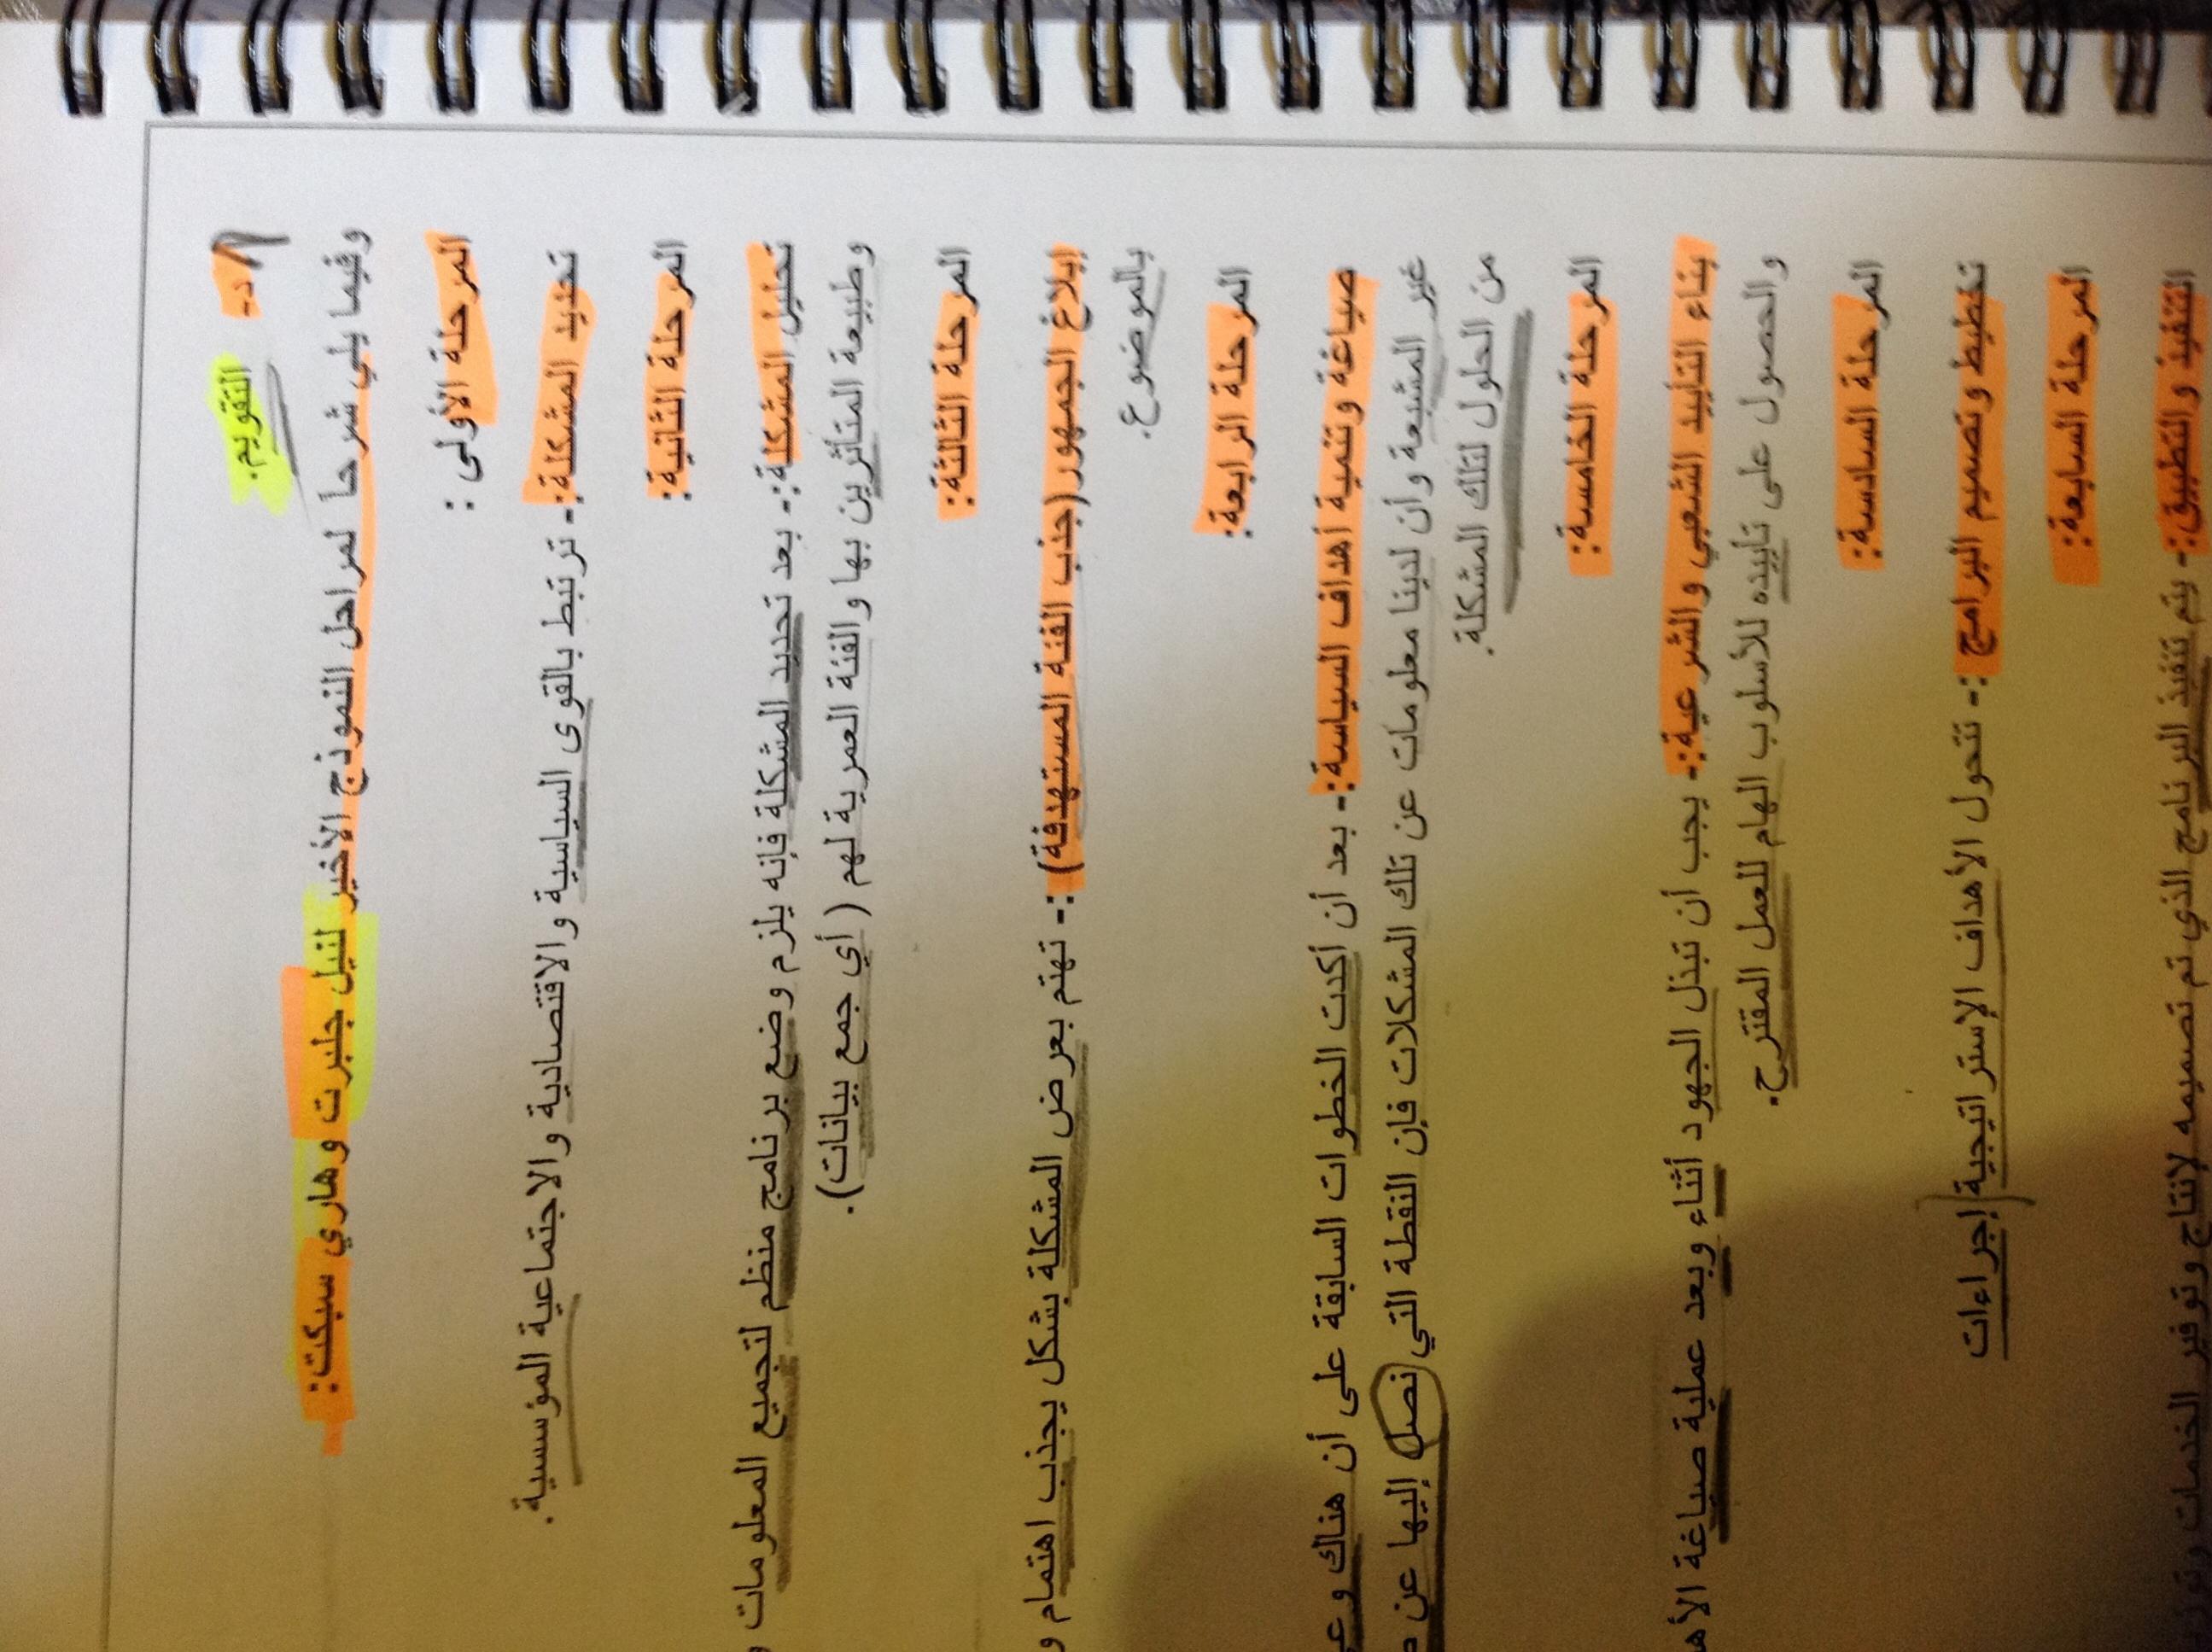 د- التقويم.
وفيما يلي شرحا لمراحل النموذج الأخير لنيل جلبرت وهاري سبكت:
المرحلة الأولى :
تحديد المشكلة:- ترتبط بالقوى السياسية والاقتصادية والاجتماعية المؤسسية.
المرحلة الثانية:
تحليل المشكلة:- بعد تحديد المشكلة فإنه يلزم وضع برنامج منظم لتجميع المعلومات
وطبيعة المتأثرين بها والفئة العمرية لهم ( أي جمع بيانات).
المرحلة الثالثة:
إبلاغ الجمهور(جذب الفئة المستهدفة) :- تهتم بعرض المشكلة بشكل يجذب اهتمام و
بالموضوع.
المرحلة الرابعة:
صياغة وتنمية أهداف السياسة:- بعد أن أكدت الخطوات السابقة على أن هناك
غير المشبعة وأن لدينا معلومات عن تلك المشكلات فإن النقطة التي نصل إليها عن
من الحلول لتلك المشكلة.
المرحلة الخامسة:
بناء التأييد الشعبي والشرعية:- يجب أن تبذل الجهود أثناء وبعد عملية صياغة
والحصول على تأييده للأسلوب الهام للعمل المقترح.
المرحلة السادسة:
تخطيط وتصميم البرامج :- تتحول الأهداف الإستراتيجية إجراءات
المرحلة السابعة:
التنفيذ والتطبيق:- يتم تنفيذ البرنامج الذي تم تصميمه لإنتاج وتوفير الخدمات